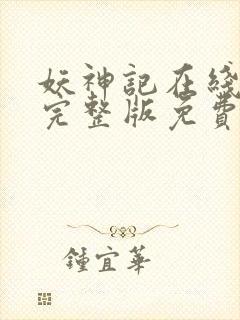 妖神記在綫
完整版免費
鍾宜華